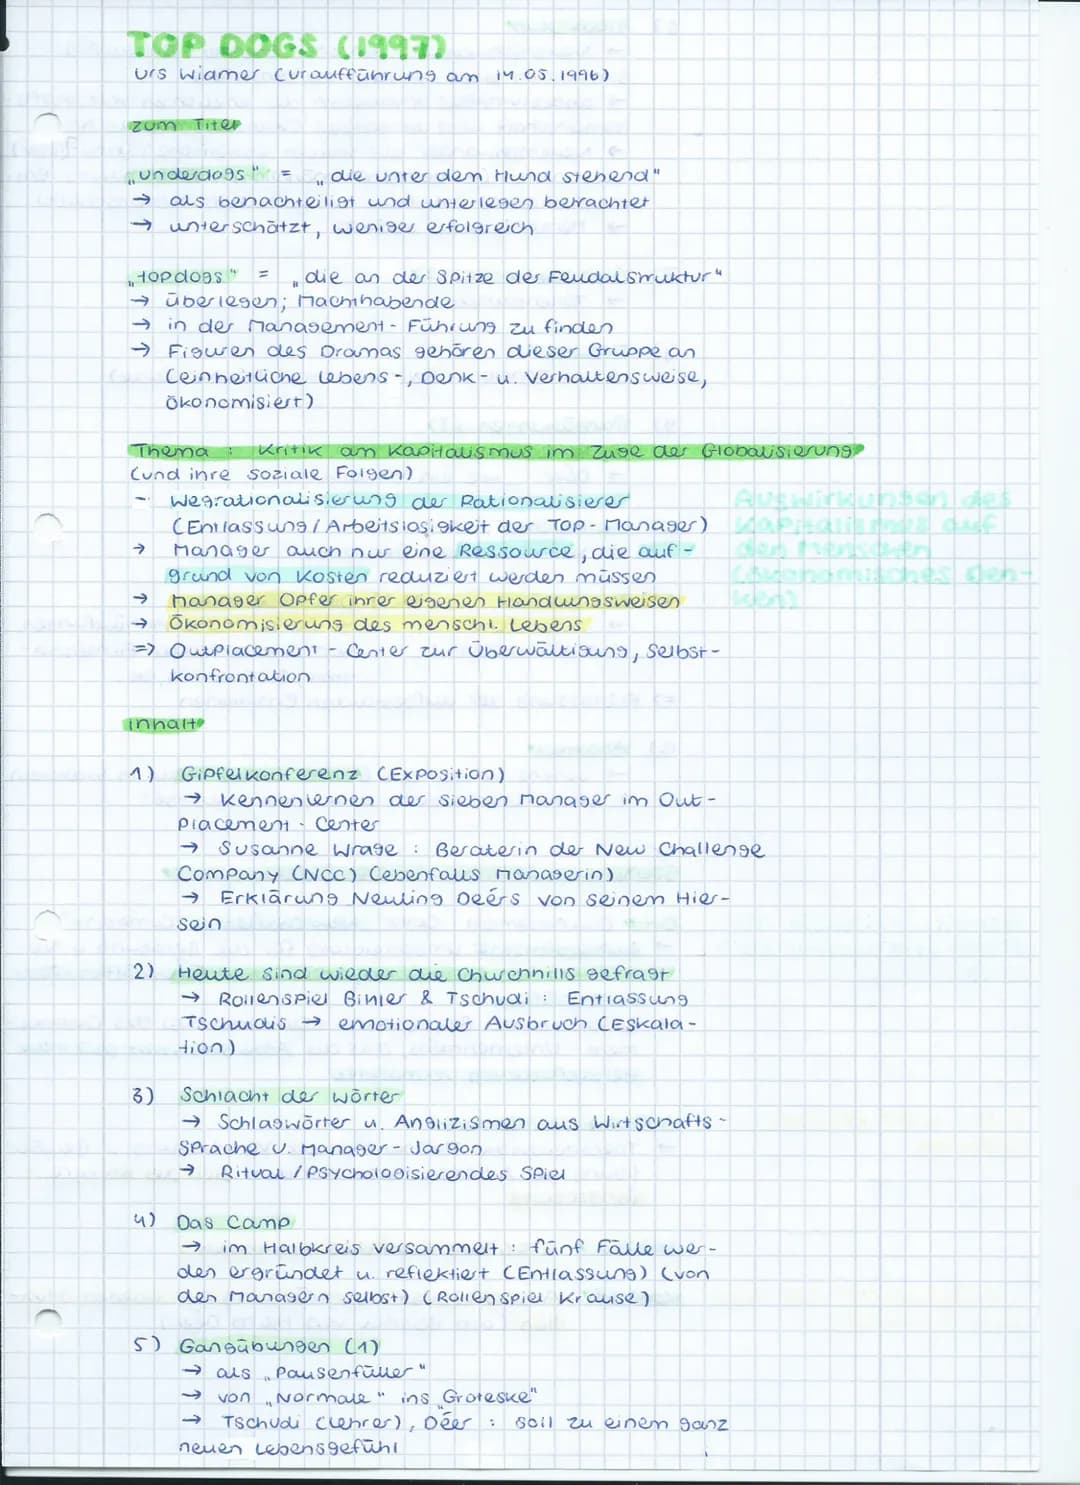 TOP DOGS (1997)
Urs Widmer (Uraufführung am 14.05.1996)
zum Titel
„underdogs" = „die unter dem Hund stehend"
→ als benachteiligt und unterlegen betrachtet
→ unterschätzt, weniger erfolgreich
„topdogs" = „die an der Spitze der Feudalstruktur"
→ überlegen; Machthabende
→ in der Management-Führung zu finden
→ Figuren des Dramas gehören dieser Gruppe an
(einheitliche Lebens-, Denk- u. Verhaltensweise,
ökonomisiert)
Thema: Kritik am Kapitalismus im Zuge der Globalisierung
(und ihre soziale Folgen)
- Wegrationalisierung der Rationalisierer
(Entlassung/Arbeitslosigkeit der Top-Manager)
→ Manager auch nur eine Ressource, die auf-
grund von Kosten reduziert werden müssen
→ Manager Opfer ihrer eigenen Handlungsweisen
→ Ökonomisierung des menschl. Lebens
=> Outplacement-Center zur Überwältigung, Selbst-
konfrontation
Auswirkungen des
Kapitalismus auf
den Menschen
(ökonomisches Den-
ken)
Inhalt
1) Gipfelkonferenz (Exposition)
→ Kennenlernen der sieben Manager im Out-
placement-Center
→ Susanne Wrage: Beraterin der New Challenge
Company (NCC) (ebenfalls Managerin)
→ Erklärung Neuling Deérs von seinem Hier-
sein
2) Heute sind wieder die Churchnills gefragt
→ Rollenspiel Binler & Tschudi: Entlassung
Tschudis → emotionaler Ausbruch (Eskala-
tion)
3) Schlacht der Wörter
→ Schlagwörter u. Anglizismen aus Wirtschafts-
sprache u. Manager-Jargon
→ Ritual/Psychologisierendes Spiel
4) Das Camp
→ im Halbkreis versammelt: fünf Fälle wer-
den ergründet u. reflektiert (Entlassung) (von
den Managern selbst) (Rollenspiel Krause)
5) Gangübungen (1)
→ als „Pausenfüller"
→ von „Normale" ins „Groteske"
→ Tschudi (Lehrer), Déer: soll zu einem ganz
neuen Lebensgefühl